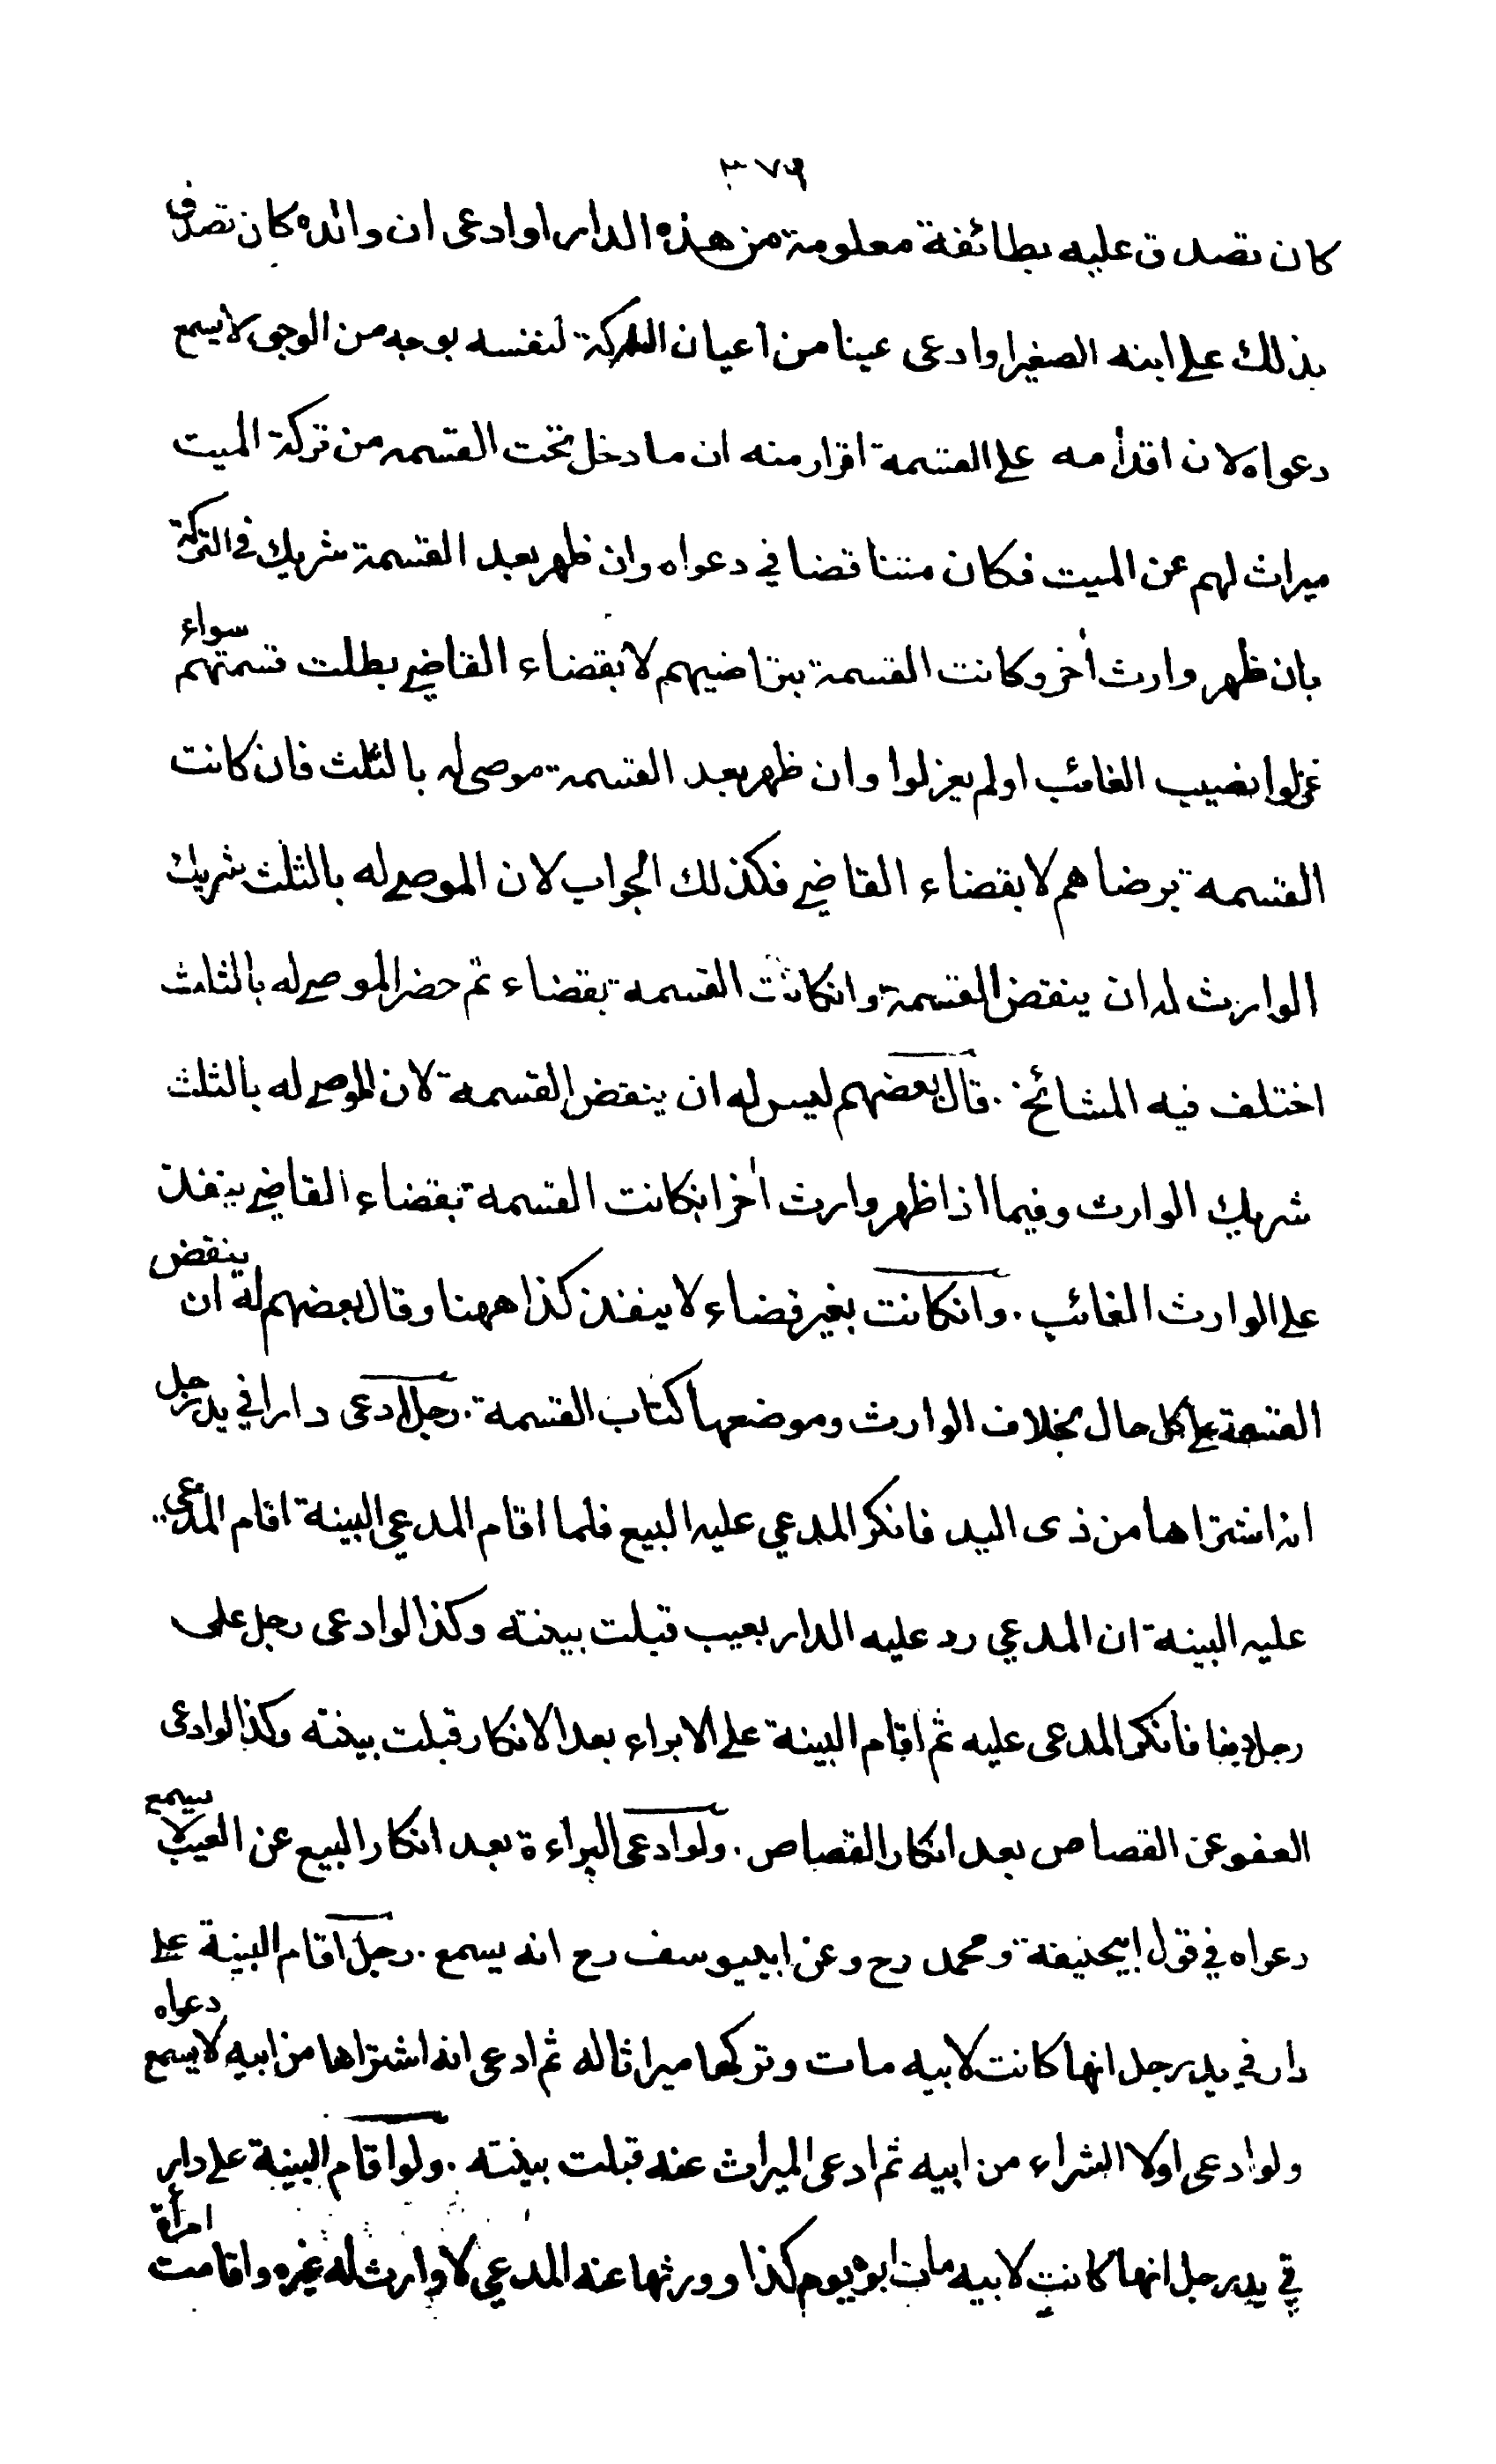 ٣٧٩
كان تصدق عليه بطائفة معلومة من هذه الدار او ادعى ان والده كان تصدق
بذلك على ابنه الصغير او ادعى عينا من اعيان التركة لنفسه بوجه من الوجوه لا يسمع
دعواه لان اقدامه على القسمة اقرار منه ان ما دخل تحت القسمه من تركة الميت
ميراث لهم عن الميت فكان متناقضا في دعواه وان ظهر بعد القسمة شريك في التركة
بان ظهر وارث أخر وكانت القسمة بتراضيهم لا بقضاء القاضي بطلت قسمتهم سواء
عزلوا نصيب الغائب اولم يعزلوا وان ظهر بعد القسمة موصى له بالثلث فان كانت
القسمة برضاهم لا بقضاء القاضي فكذلك الجواب لان الموصى له بالثلث شريك
الوارث له ان ينقض القسمة وانكانت القسمة بقضاء ثم حضر الموصى له بالثلث
اختلف فيه المشائخ . قال بعضهم ليس له ان ينقض القسمة لان الموصى له بالثلث
شريك الوارث وفيما اذا ظهر وارث أخر انكانت القسمة بقضاء القاضي ينفذ
على الوارث الغائب . وانكانت بغير قضاء لا ينفذ كذا ههنا وقال بعضهم له ان ينقض
القسمة على كل حال بخلاف الوارث وموضعها كتاب القسمة . رجل ادعى دارا في يد رجل
انه اشتراها من ذى اليد فانكر المدعي عليه البيع فلما اقام المدعي البينة اقام المدعى
عليه البينة ان المدعي رد عليه الدار بعيب قبلت بينته وكذا لو ادعى رجل على
رجل دينا فانكر المدعى عليه ثم اقام البينة على الابراء بعد الانكار قبلت بينته وكذا لو ادعى
العفو عن القصاص بعد انكار القصاص . ولو ادعى البراءة بعد انكار البيع عن العيب لا يسمع
دعواه في قول ابيحنيفة ومحمد رح وعن ابييوسف رح انه يسمع . رجل اقام البينة على
دار في يد رجل انها كانت لابيه مات وتركها ميراثا له ثم ادعى انه اشتراها من ابيه لا يسمع دعواه
ولو ادعى اولا الشراء من ابيه ثم ادعى الميراث عنه قبلت بينته . ولو اقام البينة على دار
في يد رجل انها كانت لابيه مات ابوه يوم كذا وورثها عنه المدعي لا وارث له غيره واقامت امرأة